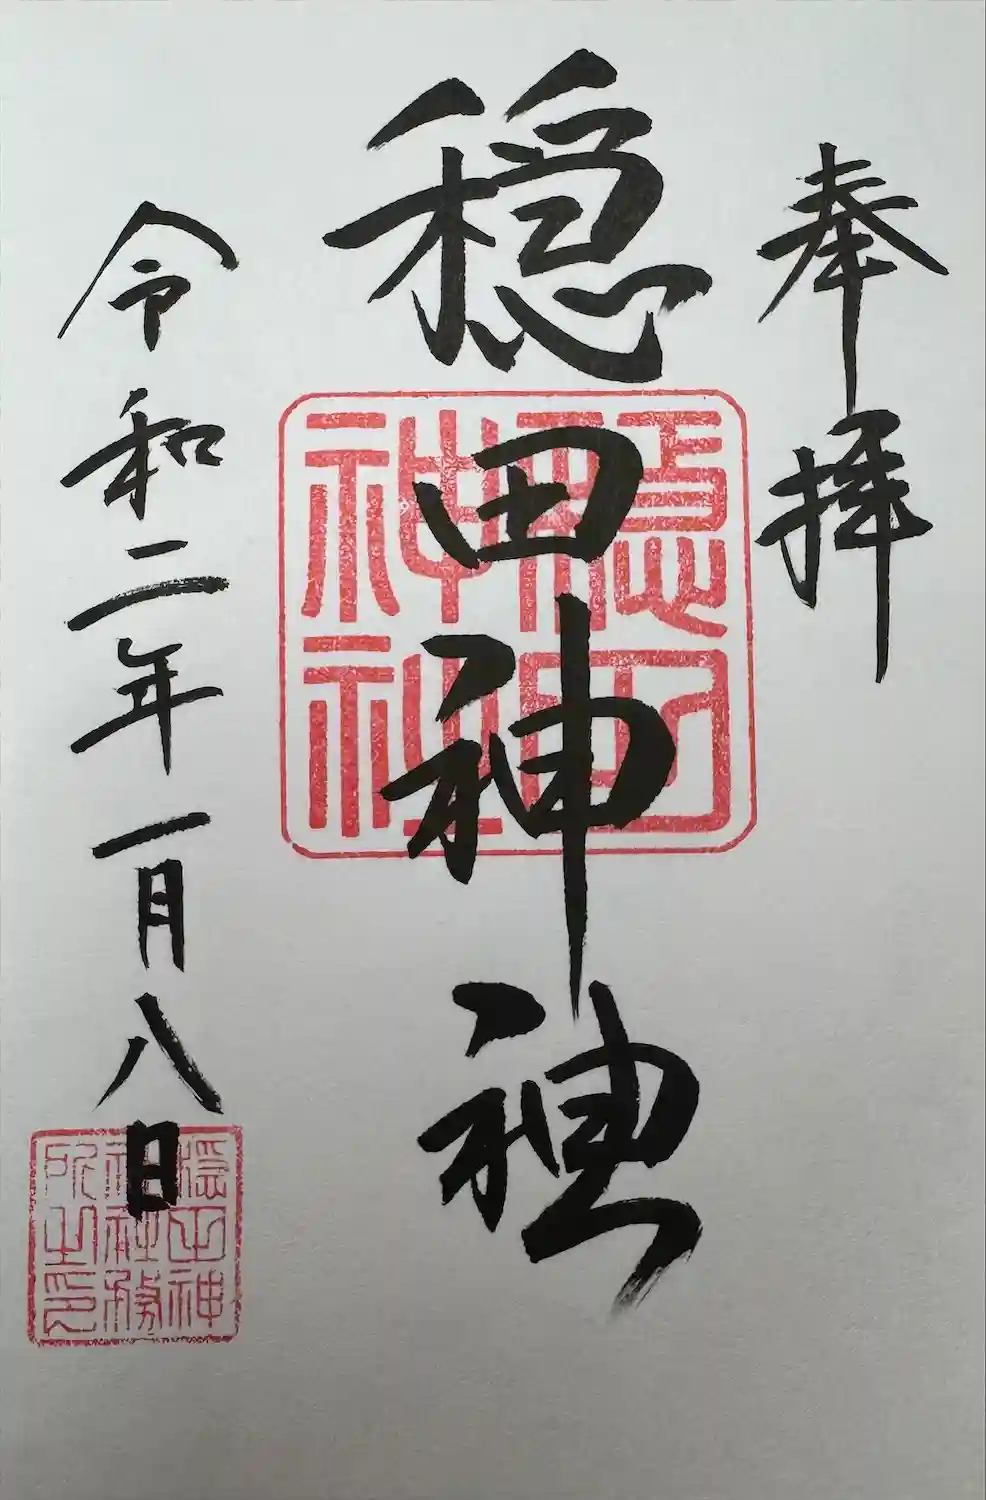 奉拝
穏田神社
穏田神社
令和二年一月八日
穏田神社社務所之印